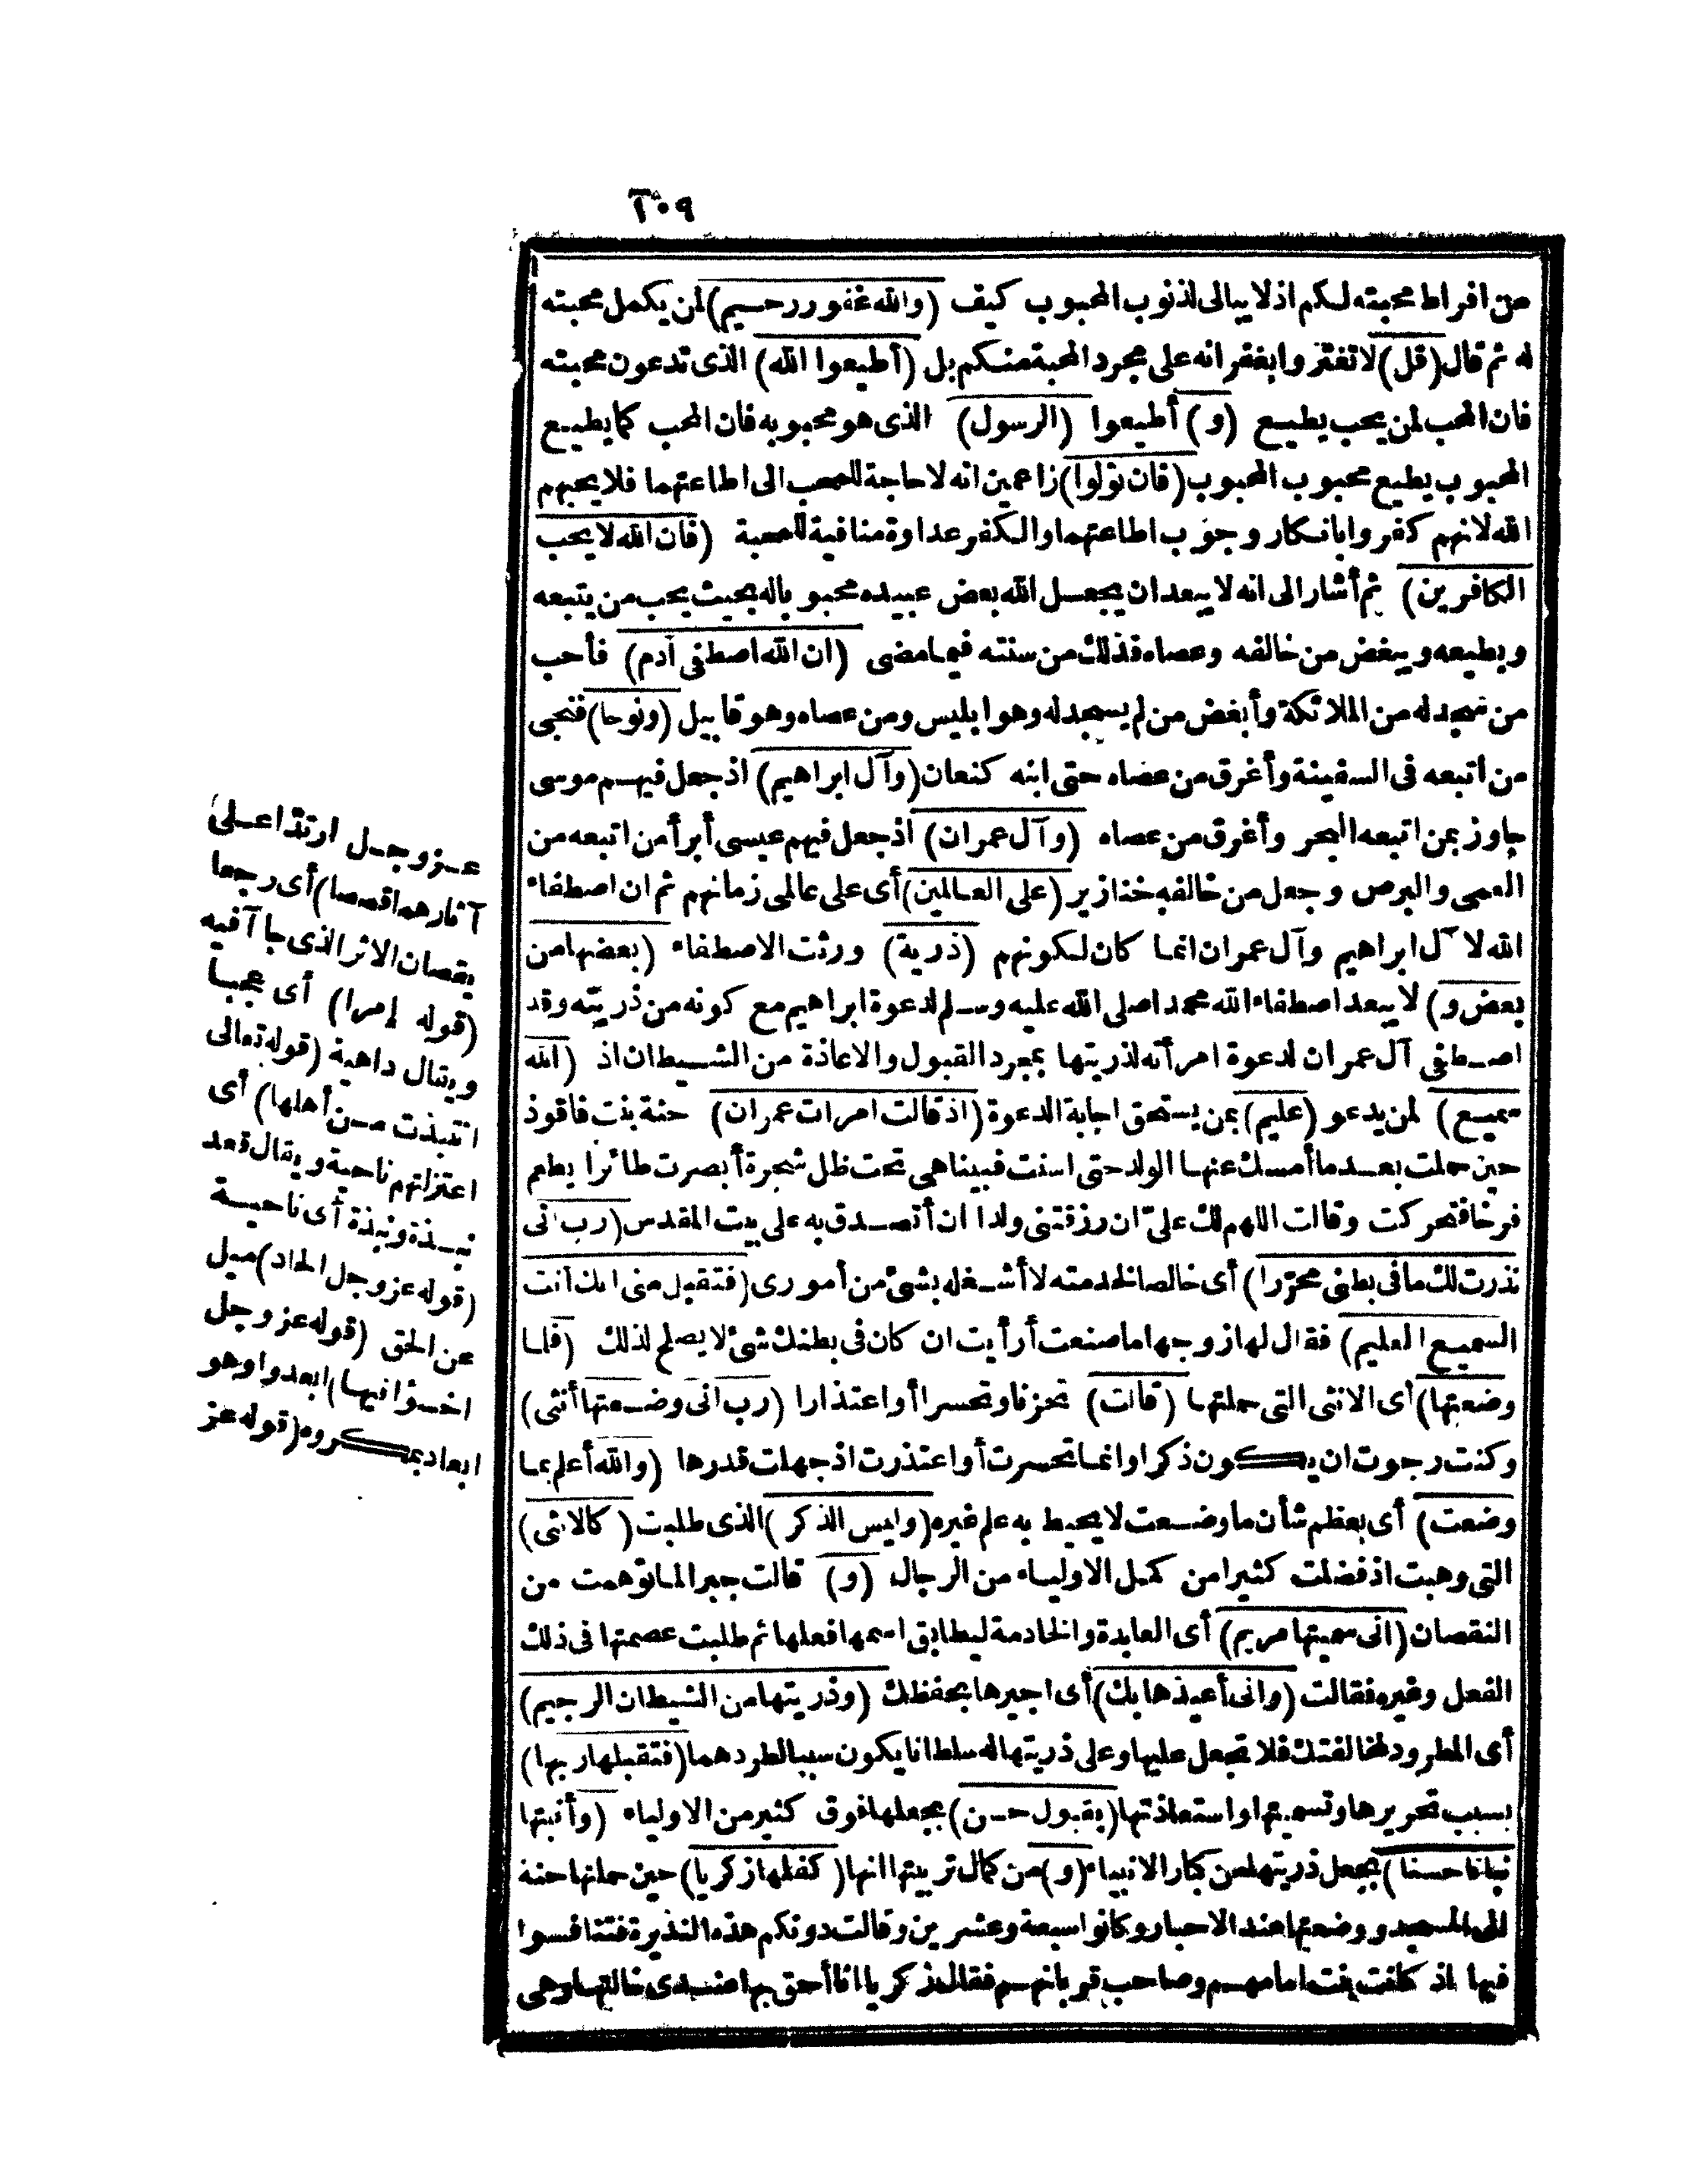 ١٠٩
من افراط محبته لكم اذ لا يبالى لذنوب المحبوب كيف (والله غفور رحيم) لمن يكمل محبته
له ثم قال (قل) لا تغتروا بغفرانه على مجرد المحبة منكم بل (أطيعوا الله) الذى تدعون محبته
فان المحب لمن يحب يطيع (و) أطيعوا (الرسول) الذى هو محبوبه فان المحب كما يطيع
المحبوب يطيع محبوب المحبوب (فان تولوا) زاعمين انه لا حاجة للمحب الى اطاعتهما فلا يحبهم
الله لانهم كفروا بانكار وجوب اطاعتهما والكفر عداوة منافية للمحبة (فان الله لا يحب
الكافرين) ثم أشار الى انه لا يبعد ان يجعل الله بعض عبيده محبوباله بحيث يحب من يتبعه
ويطيعه ويبغض من خالفه وعصاه فذلك من سنته فيما مضى (ان الله اصطفى آدم) فأحب
من سجد له من الملائكة وأبغض من لم يسجد له وهو ابليس ومن عصاه وهو قابيل (ونوحا) فنجى
من اتبعه فى السفينة وأغرق من عصاه حتى ابنه كنعان (وآل ابراهيم) اذ جعل فيهم موسى
جاوز بمن اتبعه البحر وأغرق من عصاه (وآل عمران) اذ جعل فيهم عيسى أبرأ من اتبعه من
العمى والبرص وجعل من خالفه خنازير (على العالمين) أى على عالمى زمانهم ثم ان اصطفاء
الله لآل ابراهيم وآل عمران انما كان لكونهم (ذرية) ورثت الاصطفاء (بعضها من
بعض و) لا يبعد اصطفاء الله محمدا صلى الله عليه وسلم لدعوة ابراهيم مع كونه من ذريته وقد
اصطفى آل عمران لدعوة امرأته لذريتها بمجرد القبول والاعاذة من الشيطان اذ (الله
سميع) لمن يدعو (عليم) بمن يستحق اجابة الدعوة (اذ قالت امرات عمران) حنة بنت فاقوذ
حين حملت بعد ما أمسك عنها الولد حتى اسنت فبيناهى تحت ظل شجرة أبصرت طائرا يطعم
فرخا فتحركت وقالت اللهم لك علىّ ان رزقتنى ولدا ان أتصدق به على بيت المقدس (رب انى
نذرت لك ما فى بطنى محررا) أى خالصا لخدمته لا أشغله بشئ من أمورى (فتقبل منى انك أنت
السميع العليم) فقال لها زوجها ما صنعت أرأيت ان كان فى بطنك شئ لا يصلح لذلك (فلما
وضعتها) أى الانثى التى حملتها (قالت) تحزنا وتحسرا أو اعتذارا (رب انى وضعتها أنثى)
وكنت رجوت ان يكون ذكرا وانما تحسرت أو اعتذرت اذ جهلت قدرها (والله أعلم بما
وضعت) أى بعظم شأن ما وضعت لا يحيط به علم غيره (وليس الذكر) الذى طلبت (كالانثى)
التى وهبت اذ فضلت كثيرا من كمل الاولياء من الرجال (و) قالت جبرا لما توهمت من
النقصان (انى سميتها مريم) أى العابدة والخادمة ليطابق اسمها فعلها ثم طلبت عصمتها فى ذلك
الفعل وغيره فقالت (وانى أعيذها بك) أى اجيرها بحفظك (وذريتها من الشيطان الرجيم)
أى المطرود لمخالفتك فلا تجعل عليها وعلى ذريتها له سلطانا يكون سببا لطردهما (فتقبلها ربها)
بسبب تحريرها وتسميتها واستعاذتها (بقبول حسن) بجعلها فوق كثير من الاولياء (وأنبتها
نباتا حسنا) بجعل ذريتها من كبار الانبياء (و) من كمال تربيتها انها (كفلها زكريا) حين حملتها حنة
الى المسجد ووضعتها عند الاحبار وكانوا سبعة وعشرين وقالت دونكم هذه النذيرة فتنافسوا
فيها اذ كانت بنت امامهم وصاحب قربانهم فقال زكريا انا أحق بها عندى خالتها وهى
عز وجل ارتدا على
آثارهما قصصا) أى رجعا
يقصان الاثر الذى جاآ فيه
(قوله إمرا) أى عجبا
ويقال داهية (قوله تعالى
انتبذت من أهلها) أى
اعتزلتهم ناحية ويقال قعد
نبذة ونبذة أى ناحية
(قوله عز وجل الحاد) ميل
عن الحق (قوله عز وجل
اخسؤا فيها) ابعدوا وهو
ابعاد بمكروه (قوله عز